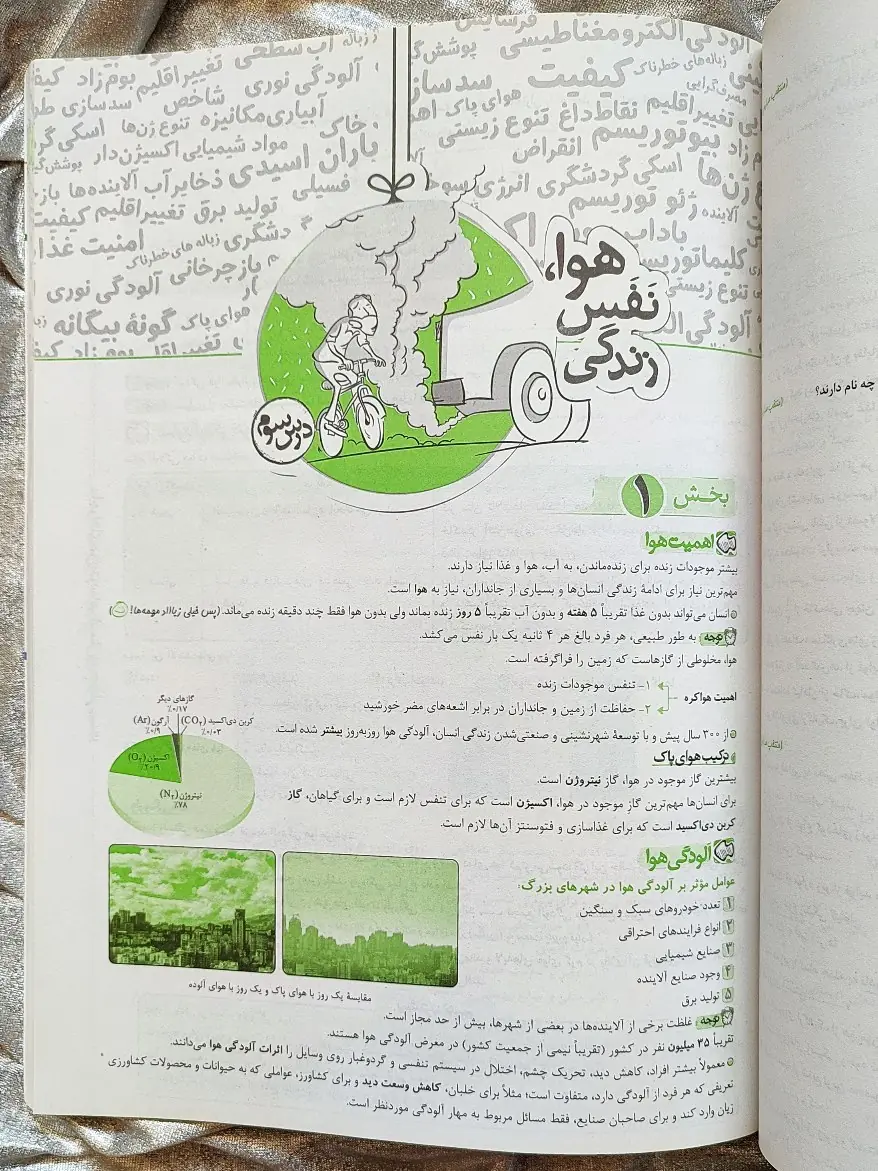 آلودگی الکترومغناطیسی
زباله‌های خطرناک کیفیت
سدسازی
مصرف‌گرایی
تغییر اقلیم نقاط داغ تنوع زیستی
هوای پاک
بیوتوریسم انقراض
اسکی گردشگری انرژی
ژئو توریسم
آلاینده
کلیماتوریسم
تنوع زیستی
زباله آب سطحی تغییر اقلیم بوم‌زاد
آلودگی نوری شاخص
آبیاری مکانیزه تنوع ژن‌ها سدسازی
خاک مواد شیمیایی اکسیژن‌دار
باران اسیدی ذخایر آب آلاینده‌ها
فسیلی تولید برق تغییر اقلیم کیفیت
گردشگری زباله های خطرناک امنیت غذا
بازچرخانی آلودگی نوری
هوای پاک گونهٔ بیگانه
هوا،
نَفَس
زندگی
درس سوم
بخش ۱
اهمیت هوا
بیشتر موجودات زنده برای زنده‌ماندن، به آب، هوا و غذا نیاز دارند.
مهم‌ترین نیاز برای ادامهٔ زندگی انسان‌ها و بسیاری از جانداران، نیاز به هوا است.
انسان می‌تواند بدون غذا تقریباً ۵ هفته و بدون آب تقریباً ۵ روز زنده بماند ولی بدون هوا فقط چند دقیقه زنده می‌ماند. (پس خیلی زیااااد مهمه‌ها!)
توجه به طور طبیعی، هر فرد بالغ هر ۴ ثانیه یک بار نفس می‌کشد.
هوا، مخلوطی از گازهاست که زمین را فراگرفته است.
اهمیت هواکره
۱- تنفس موجودات زنده
۲- حفاظت از زمین و جانداران در برابر اشعه‌های مضر خورشید
از ۳۰۰ سال پیش و با توسعهٔ شهرنشینی و صنعتی‌شدن زندگی انسان، آلودگی هوا روزبه‌روز بیشتر شده است.
ترکیب هوای پاک
بیشترین گاز موجود در هوا، گاز نیتروژن است.
برای انسان‌ها مهم‌ترین گاز موجود در هوا، اکسیژن است که برای تنفس لازم است و برای گیاهان، گاز
کربن دی‌اکسید است که برای غذاسازی و فتوسنتز آن‌ها لازم است.
گازهای دیگر
٪۰/۱۷
کربن دی‌اکسید (CO۲)
٪۰/۰۳
آرگون (Ar)
٪۰/۹
اکسیژن (O۲)
٪۲۰/۹
نیتروژن (N۲)
٪۷۸
آلودگی هوا
عوامل مؤثر بر آلودگی هوا در شهرهای بزرگ:
۱ تعدد خودروهای سبک و سنگین
۲ انواع فرایندهای احتراقی
۳ صنایع شیمیایی
۴ وجود صنایع آلاینده
۵ تولید برق
مقایسهٔ یک روز با هوای پاک و یک روز با هوای آلوده
توجه غلظت برخی از آلاینده‌ها در بعضی از شهرها، بیش از حد مجاز است.
تقریباً ۳۵ میلیون نفر در کشور (تقریباً نیمی از جمعیت کشور) در معرض آلودگی هوا هستند.
معمولاً بیشتر افراد، کاهش دید، تحریک چشم، اختلال در سیستم تنفسی و گردوغبار روی وسایل را اثرات آلودگی هوا می‌دانند.
تعریفی که هر فرد از آلودگی دارد، متفاوت است؛ مثلاً برای خلبان، کاهش وسعت دید و برای کشاورز، عواملی که به حیوانات و محصولات کشاورزی
زیان وارد کند و برای صاحبان صنایع، فقط مسائل مربوط به مهار آلودگی موردنظر است.
چه نام دارند؟